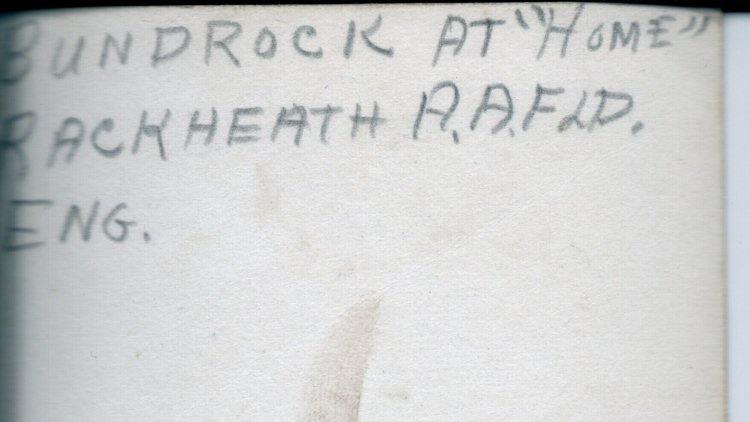 BUNDROCK AT "HOME"
RACKHEATH A.A.FLD.
ENG.